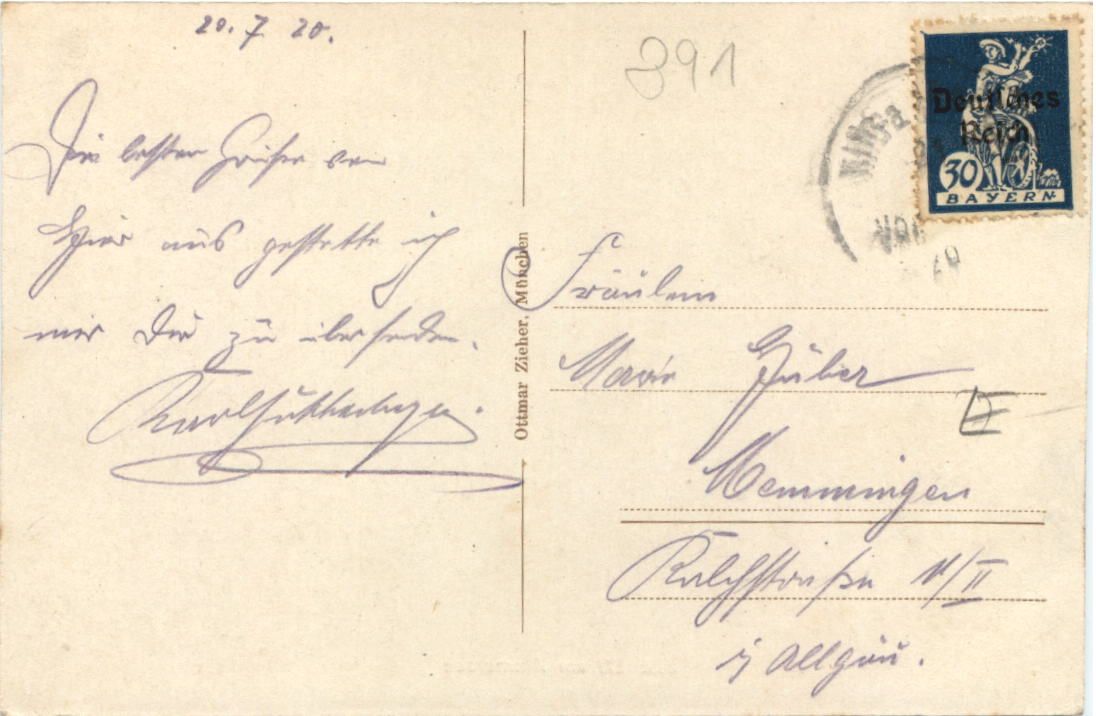 20.7.20.
Die besten Grüße von
Hier aus gestatte ich
mir Dir zu übersenden.
Karl
Ottmar Zieher, München
391
Deutsches
Reich
30
BAYERN
Fräulein
Marie Huber
Memmingen
Kalchstraße 11/II
i/ Allgäu.